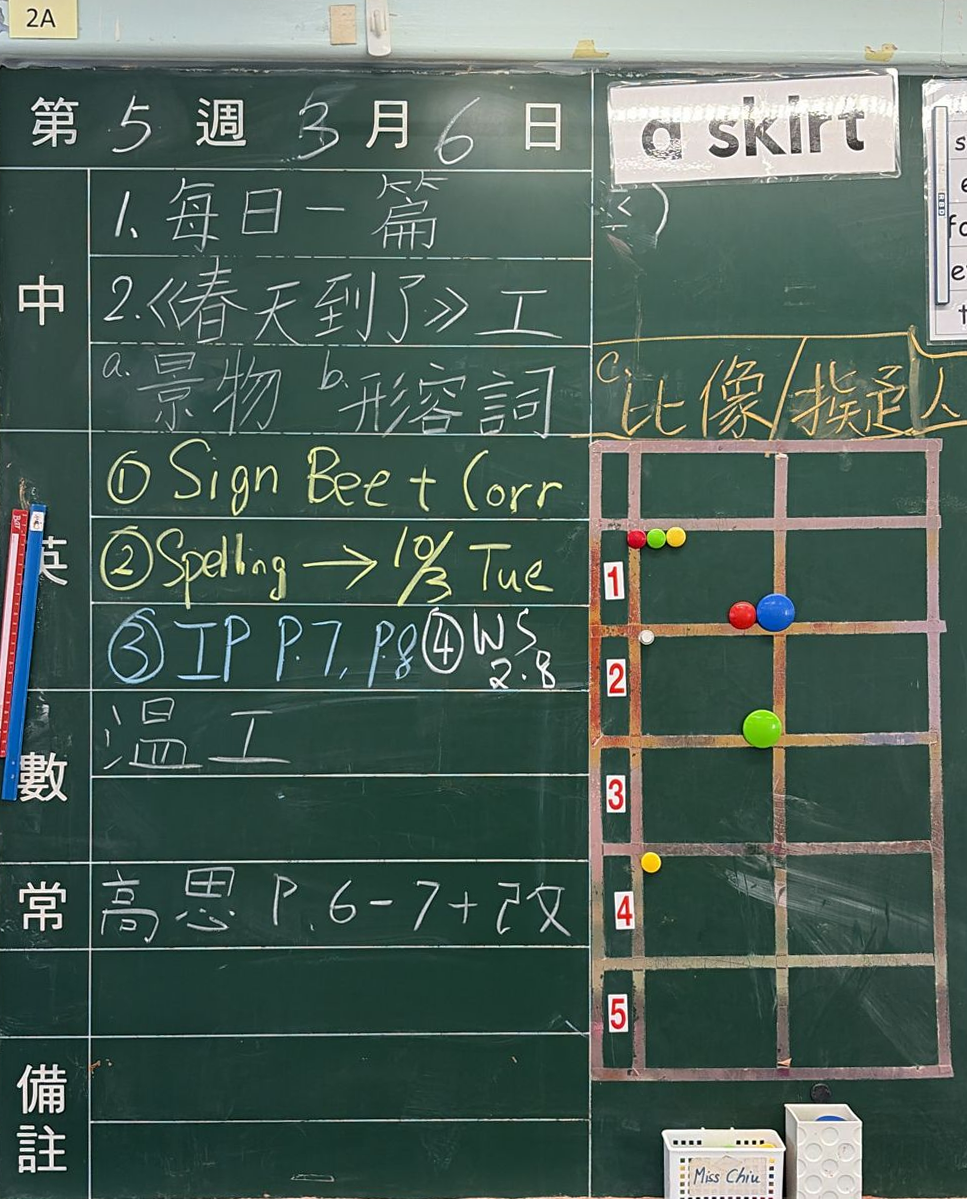 2A
第 5 週 3 月 6 日
a skirt
中
1. 每日一篇
2.《春天到了》工
a. 景物 b. 形容詞
c. 比像/擬人
英
① Sign Bee + Corr
② Spelling → 10/3 Tue
③ IP P.7, P.8 ④ WS 2.8
數
溫工
常
高思 P.6-7+改
備註
1
2
3
4
5
Miss Chiu